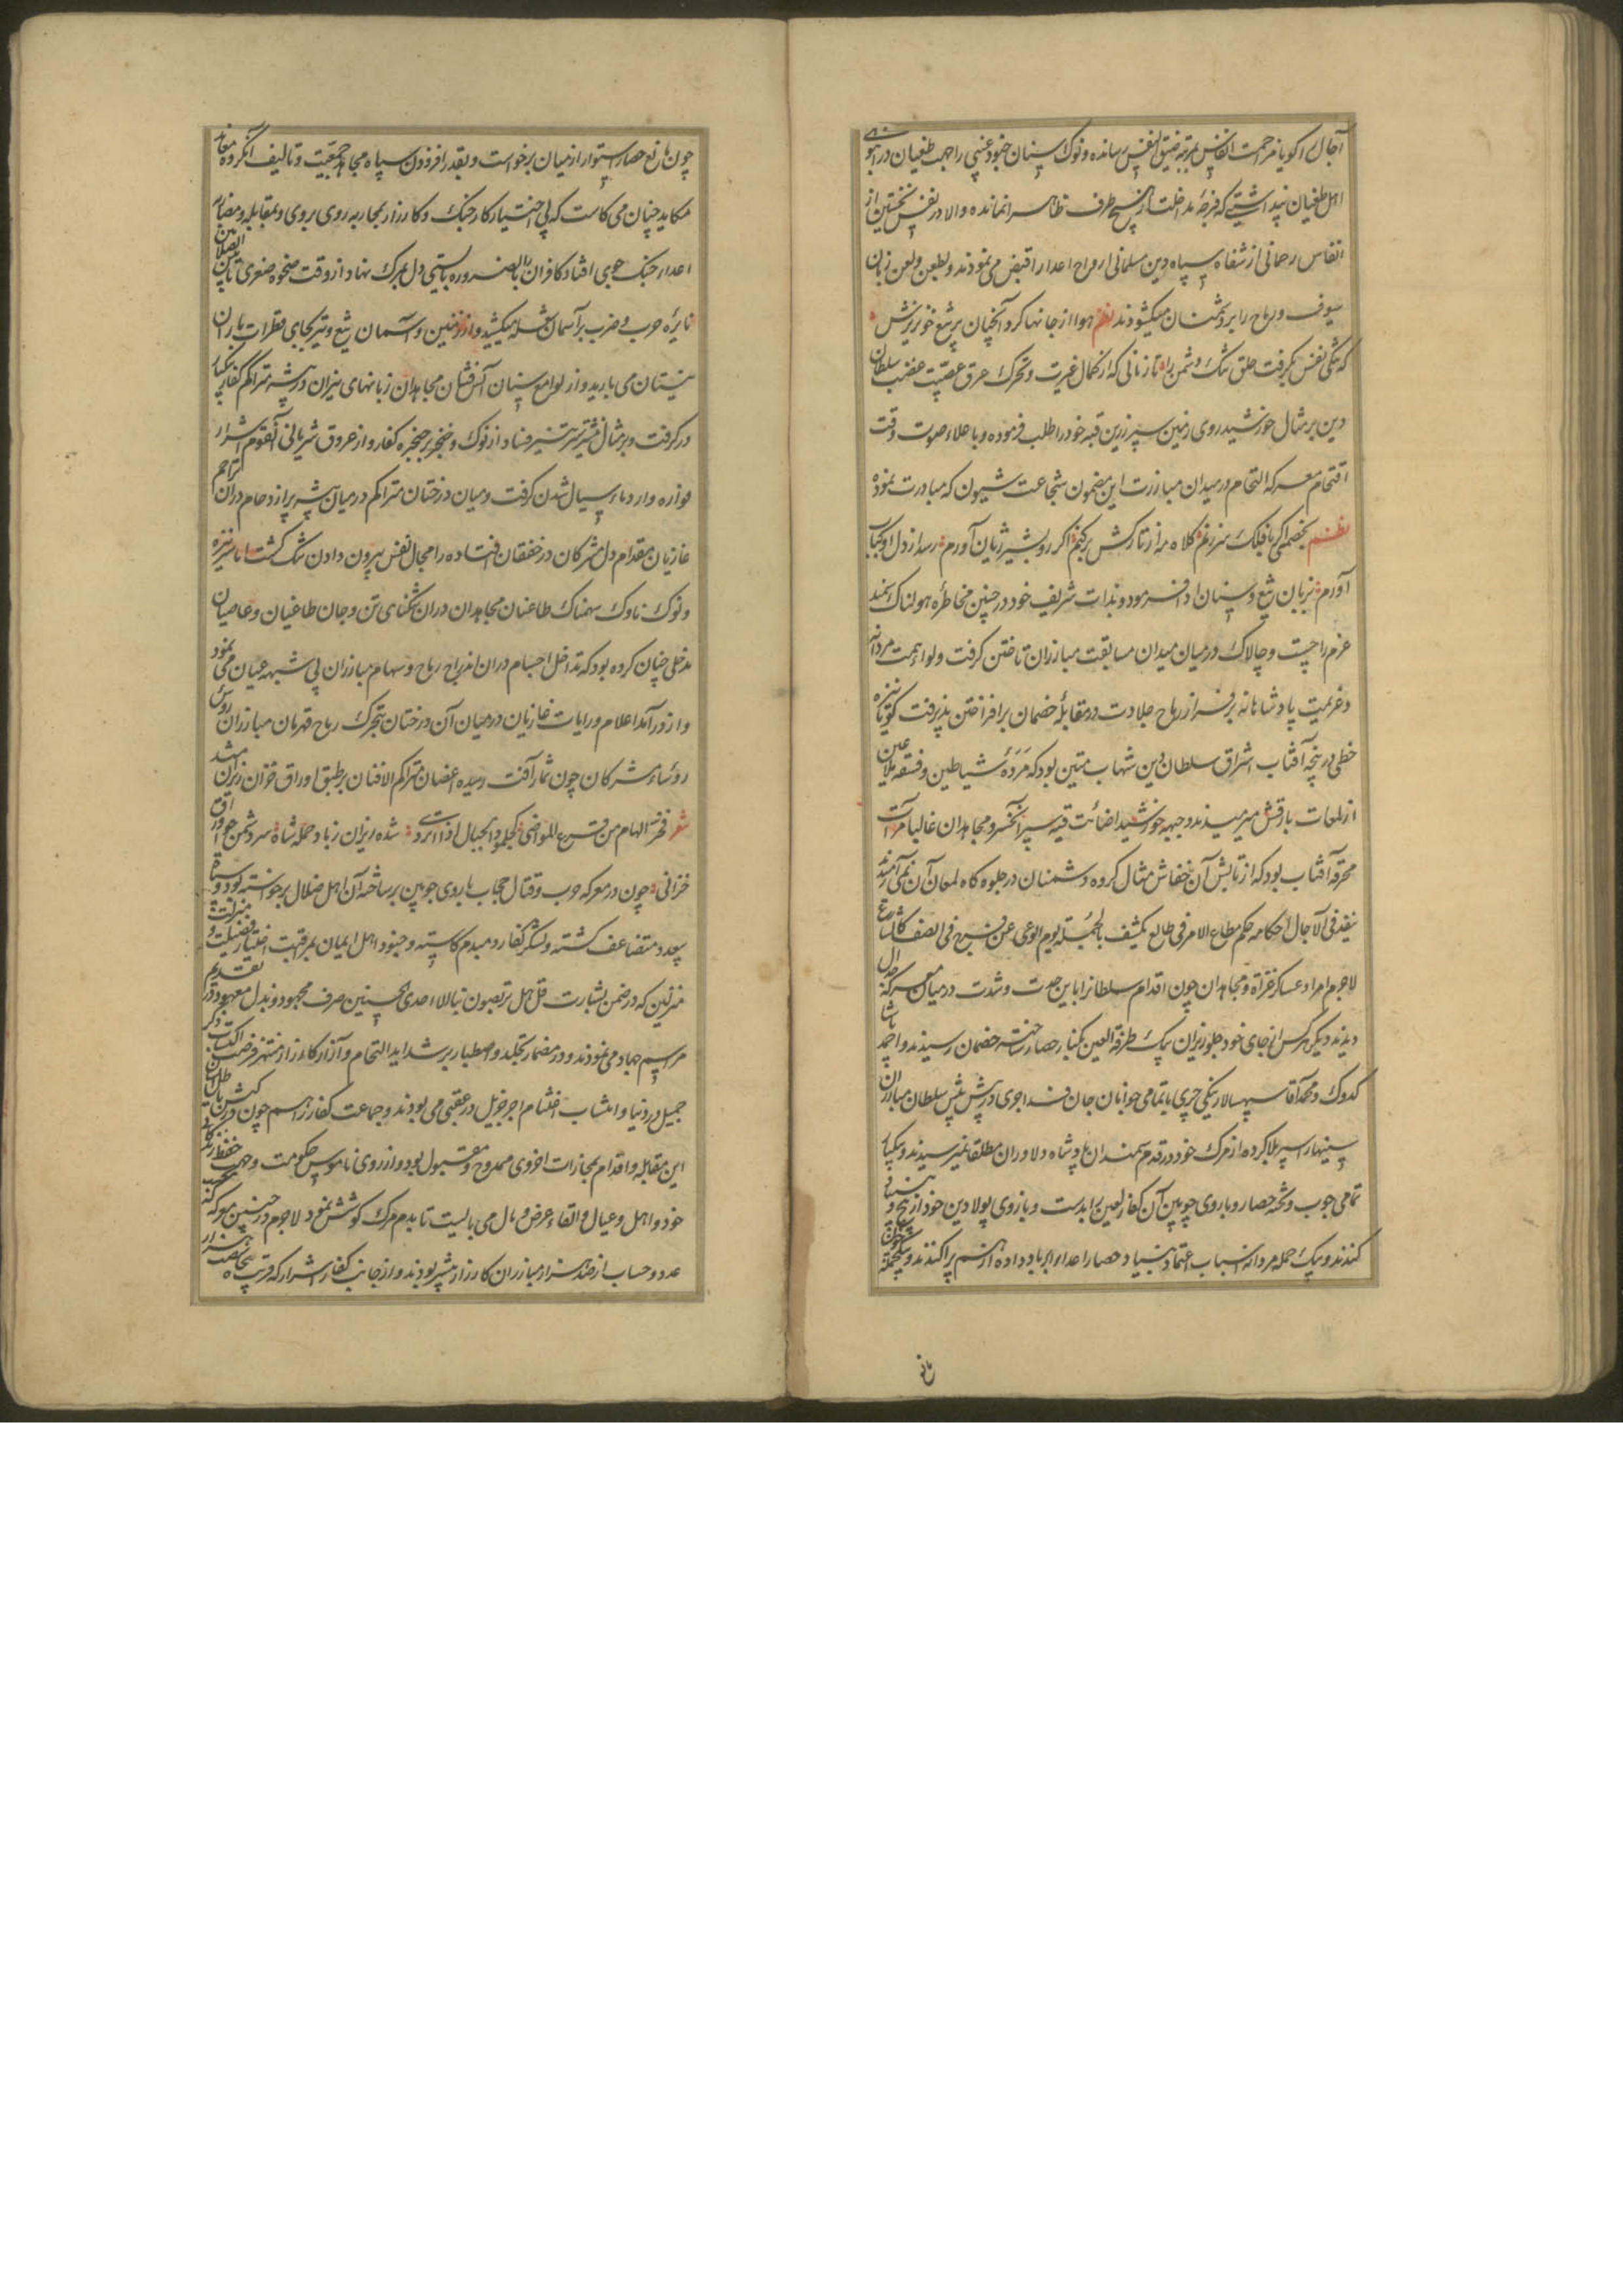 آجال را کویا مزاحمت انفاس بمرتبه ضیق النفس رسانده ونوک سنان جنود غیبی را جهت طغیان در
اهل طغیان نپداشتی که فرجهٔ مداخلت از هیچ طرف ظاهرا نمانده والا در نفس نخستین از
انفاس رحمانی از شفاه سپاه دین مسلمانی ارواح اعدا را قبض می نمودند وبطعن ولعن زبان
سیوف ورماح را بر دشمنان میکشودند نظم هوا از جانها کرد آنچنان پر تیغ خونریزش
که تنکی نفس بکرفت حلق تنک دشمن را تا زمانی که از کمال غیرت وتحرک عرق عصبیت غضب سلطان
دین بر مثال خورشید روی زمین سپر زرین قبه خود را طلب فرموده وباعلاء صوت وقت
اقتحام معرکه التحام در میدان مبارزت این مضمون شجاعت مشحون که مبادرت نموده
نظم بخصمی اکر با فلک سر زنم کلاه مه از تارکش برکنم اکر رو بشیر ژیان آورم رسد از دل او
آورم بزبان تیغ وسنان ادا فرمود وبذات شریف خود در چنین مخاطره هولناک سمند
عزم را چست وچالاک در میان میدان مسابقت مبارزان تاختن کرفت ولواء همت مردانه
وعزیمت پادشاهانه بر فراز رماح جلادت در مقابلهٔ خصمان بر افراختن پذیرفت کویا نیزه
خطی در پنجه آفتاب اشراق سلطان دین شهاب متین بود که مردهٔ شیاطین وفسقه ملاعین
از لمعات بارقش میرمیدند وجبهه خورشید اضائت قبه سپر آنخسرو مجاهدان غالبا مرآت
محرقه آفتاب بود که از تابش آن خفاش مثال کروه دشمنان در جلوه کاه لمعان آن نمی آرمیدند
ینفذ فی الآجال احکامه حکم مطاع الامر فی طالع یکشف بالحملة یوم الوغی عن فرج فی الصف
لاجرم امراء عساکر غزاة ومجاهدان چون اقدام سلطانرا باین حدت وشدت در میان معرکه
دیدند دیکر هرکس از جای خود جلوریزان بیک طرفة العین بکنار حصار ساخته خصمان رسیدند واحمد پاشا
کدوک ومحمد آقا سپهسالار ینکی چری با تمامی جوانان جان فدا جوی در پیش سلطان مبارزان
سینها را سپر بلا کرده از مرک خود در قدم سمندان پادشاه دلاوران مطلقا نمیرسیدند وبیکبار
تمامی چوب وتخته حصار وباروی چوبین آن کفار لعین را بدست وبازوی پولادین خود از بیخ
کندند وبیک حمله مردانه اسباب اعتماد بنیاد حصار اعدا را بر باد داده از هم پراکندند
مانع
چون مانع حصار استوار از میان برخواست وبقدر افزودن سپاه مجاهد جمعیت وتالیف آنکروه معاند
مکاید چنان می کاست که بی اختیار کار جنک وکارزار بمحاربه روی بروی وبمقابله ومضاربه
اعداء جنک جوی افتاد کافران را بالضروره بایستی دل بمرک نهاد از وقت ضحوه صغری تا بین الصلاتین
نایره حرب وضرب بر آسمان شعله میکشید واز زمین وآسمان تیغ وتیر بجای قطرات باران
نیستان می بارید واز لوامع سنان آتش فشان مجاهدان زبانهای نیران در بیشه متراکم کفار
در کرفت وبر مثال نشتر سر تیز فصاد از نوک خنجر بر حنجره کفار واز عروق شریانی آنقوم اشرار
فواره وار دماء سیال شدن کرفت ومیان درختان متراکم در میان بیشه پر از ازدحام در ان تزاحم
غازیان مقدام دل مشرکان در خفقان افتاده را مجال نفس بیرون دادن تنک کشت اما سر نیزه
ونوک ناوک سهمناک طاعنان مجاهدان در ان تنکنای تن وجان طاغیان وعاصیان
مدخلی چنان کرده بود که تداخل اجسام در ان اندراج رماح وسهام مبارزان بی شبهه عیان می نمود
واز ورآمد اعلام ورایات غازیان در میان آن درختان بتحرک ریاح قهر مبارزان روس
رؤساء مشرکان چون ثمار آفت رسیده اغصان متراکم الافنان بر طبق اوراق خزان ریزان میشد
شعر شده ریزان ز باد حمله شاه سر دشمن چو اوراق
خزانی چون در معرکه حرب وقتال حجاب باروی چوبین بر ساخته آن اهل ضلال برخواسته بود
بعدد متضاعف کشته ولشکر کفار دمبدم کاسته وجنود اهل ایمان بمراقبت اختیار فضیلت
منزلتین که در ضمن بشارت قل هل تربصون بنا الا احدی الحسنیین صرف مجهود وبذل معهود در تقدیم
مراسم جهاد می نمودند ودر مضمار تجلد واصطبار بر شداید التحام وآزار کارزار منتهز فرصت
جمیل در دنیا وانتساب اغتنام اجر جزیل در عقبی می بودند وجماعت کفار را هم چون در کیش
این مقابله واقدام بمجازات اخروی ممدوح ومقبول بود واز روی ناموس حکومت وجهت حفظ
خود واهل وعیال والقاء عرض ومال می بایست تا بدم مرک کوشش نمود لاجرم در چنین معرکه که
عدد وحساب از صد هزار مبارزان کارزار بیشتر بودند واز جانب کفار اشرار که قریب پنجاه